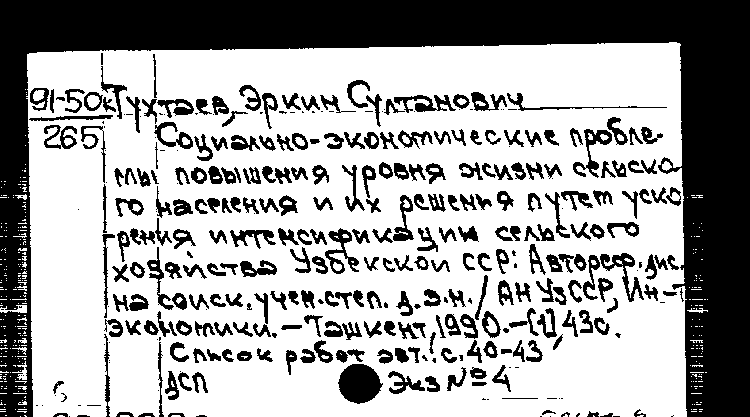 91-50к Тухтаев, Эркин Султанович
265 Социально-экономические пробле-
мы повышения уровня жизни сельско
го населения и их решения путем уско
рения интенсификации сельского
хозяйства Узбекской ССР: Автореф. дис.
на соиск. учен. степ. д.э.н. / АН УзССР, Ин-т
экономики. - Ташкент, 1990. - [1], 43с.
Список работ авт.: с. 40-43
ДСП Экз №4